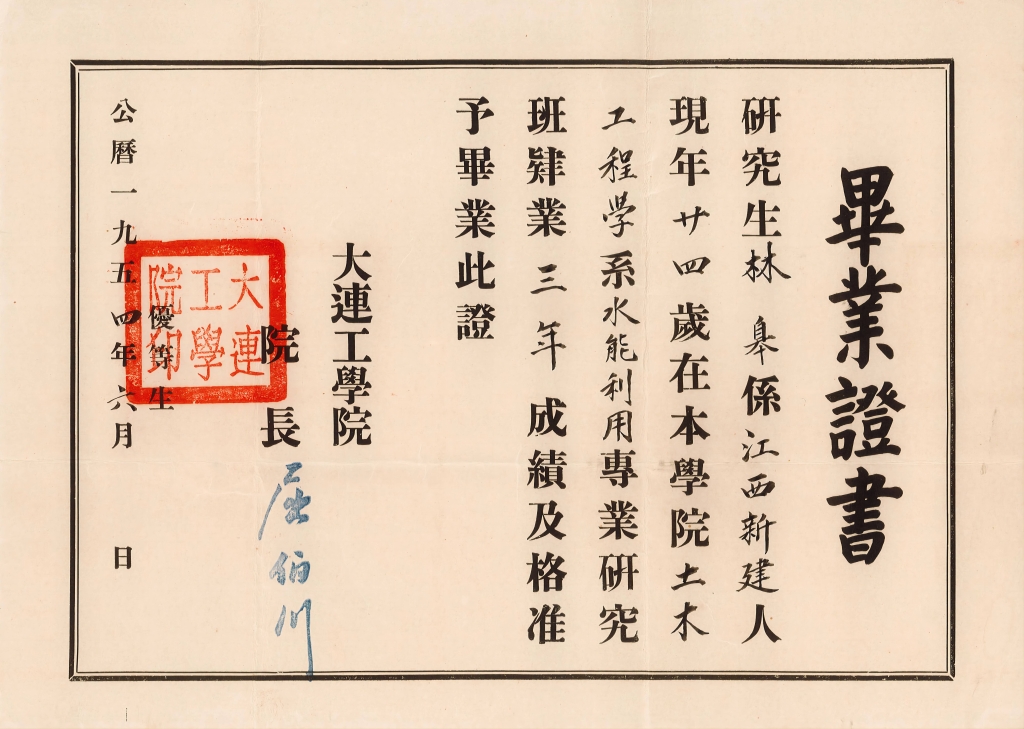 畢業證書
研究生林皋係江西新建人
現年廿四歲在本學院土木
工程學系水能利用專業研究
班肄業三年成績及格准
予畢業此證
大連工學院
院長屈伯川
大連工學院印
優等生
公曆一九五四年六月 日